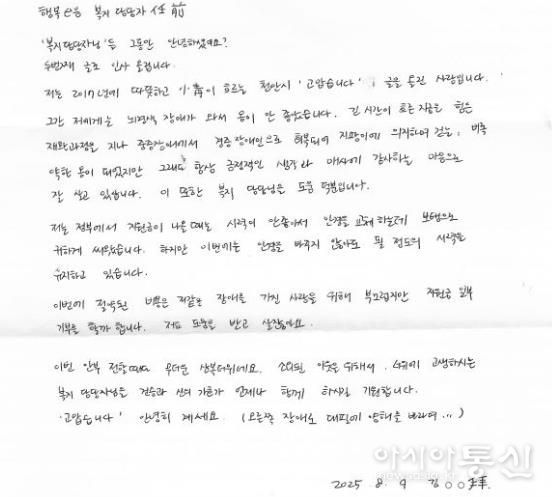 행복e음 복지 담당자 任 前
'복지담당자님'들 그동안 안녕하셨어요?
두번째 글로 인사 올립니다.
저는 2017년에 따뜻하고 흐르는 천안시 '고맙습니다' 글을 올린 사람입니다.
그간 저에게는 뇌병변 장애가 와서 몸이 안 좋았습니다. 긴 시간이 흐른 지금은 힘든
재활과정을 지나 중증장애에서 경증장애인으로 회복되어 지팡이에 의지하여 걷는, 비록
약한 몸이 되었지만 그래도 항상 긍정적인 생각과 매사에 감사하는 마음으로
잘 살고 있습니다. 이 또한 복지 담당님들 도움 덕분입니다.
저는 정부에서 지원금이 나올 때는 시력이 안좋아서 안경을 교체하는데 보탬으로
귀하게 씌워졌습니다. 하지만 이번에는 안경을 바꾸지 않아도 될 정도의 시력을
유지하고 있습니다.
이번에 절약된 비용은 저같은 장애를 가진 사람을 위해 부끄럽지만 지원금 일부
기부를 할까 합니다. 저도 도움을 받고 살잖아요.
이번 안부 전할때는 무더운 삼복더위에요. 소외된 이웃을 위해서, 더위에 고생하시는
복지 담당자님들 건승과 신의 가호가 언제나 함께 하시길 기원합니다.
'고맙습니다' 안녕히 계세요. (오른쪽 장애로 대필에 양해를 바라며...)
2025 8. 9 김○○ 拜.
아시아통신